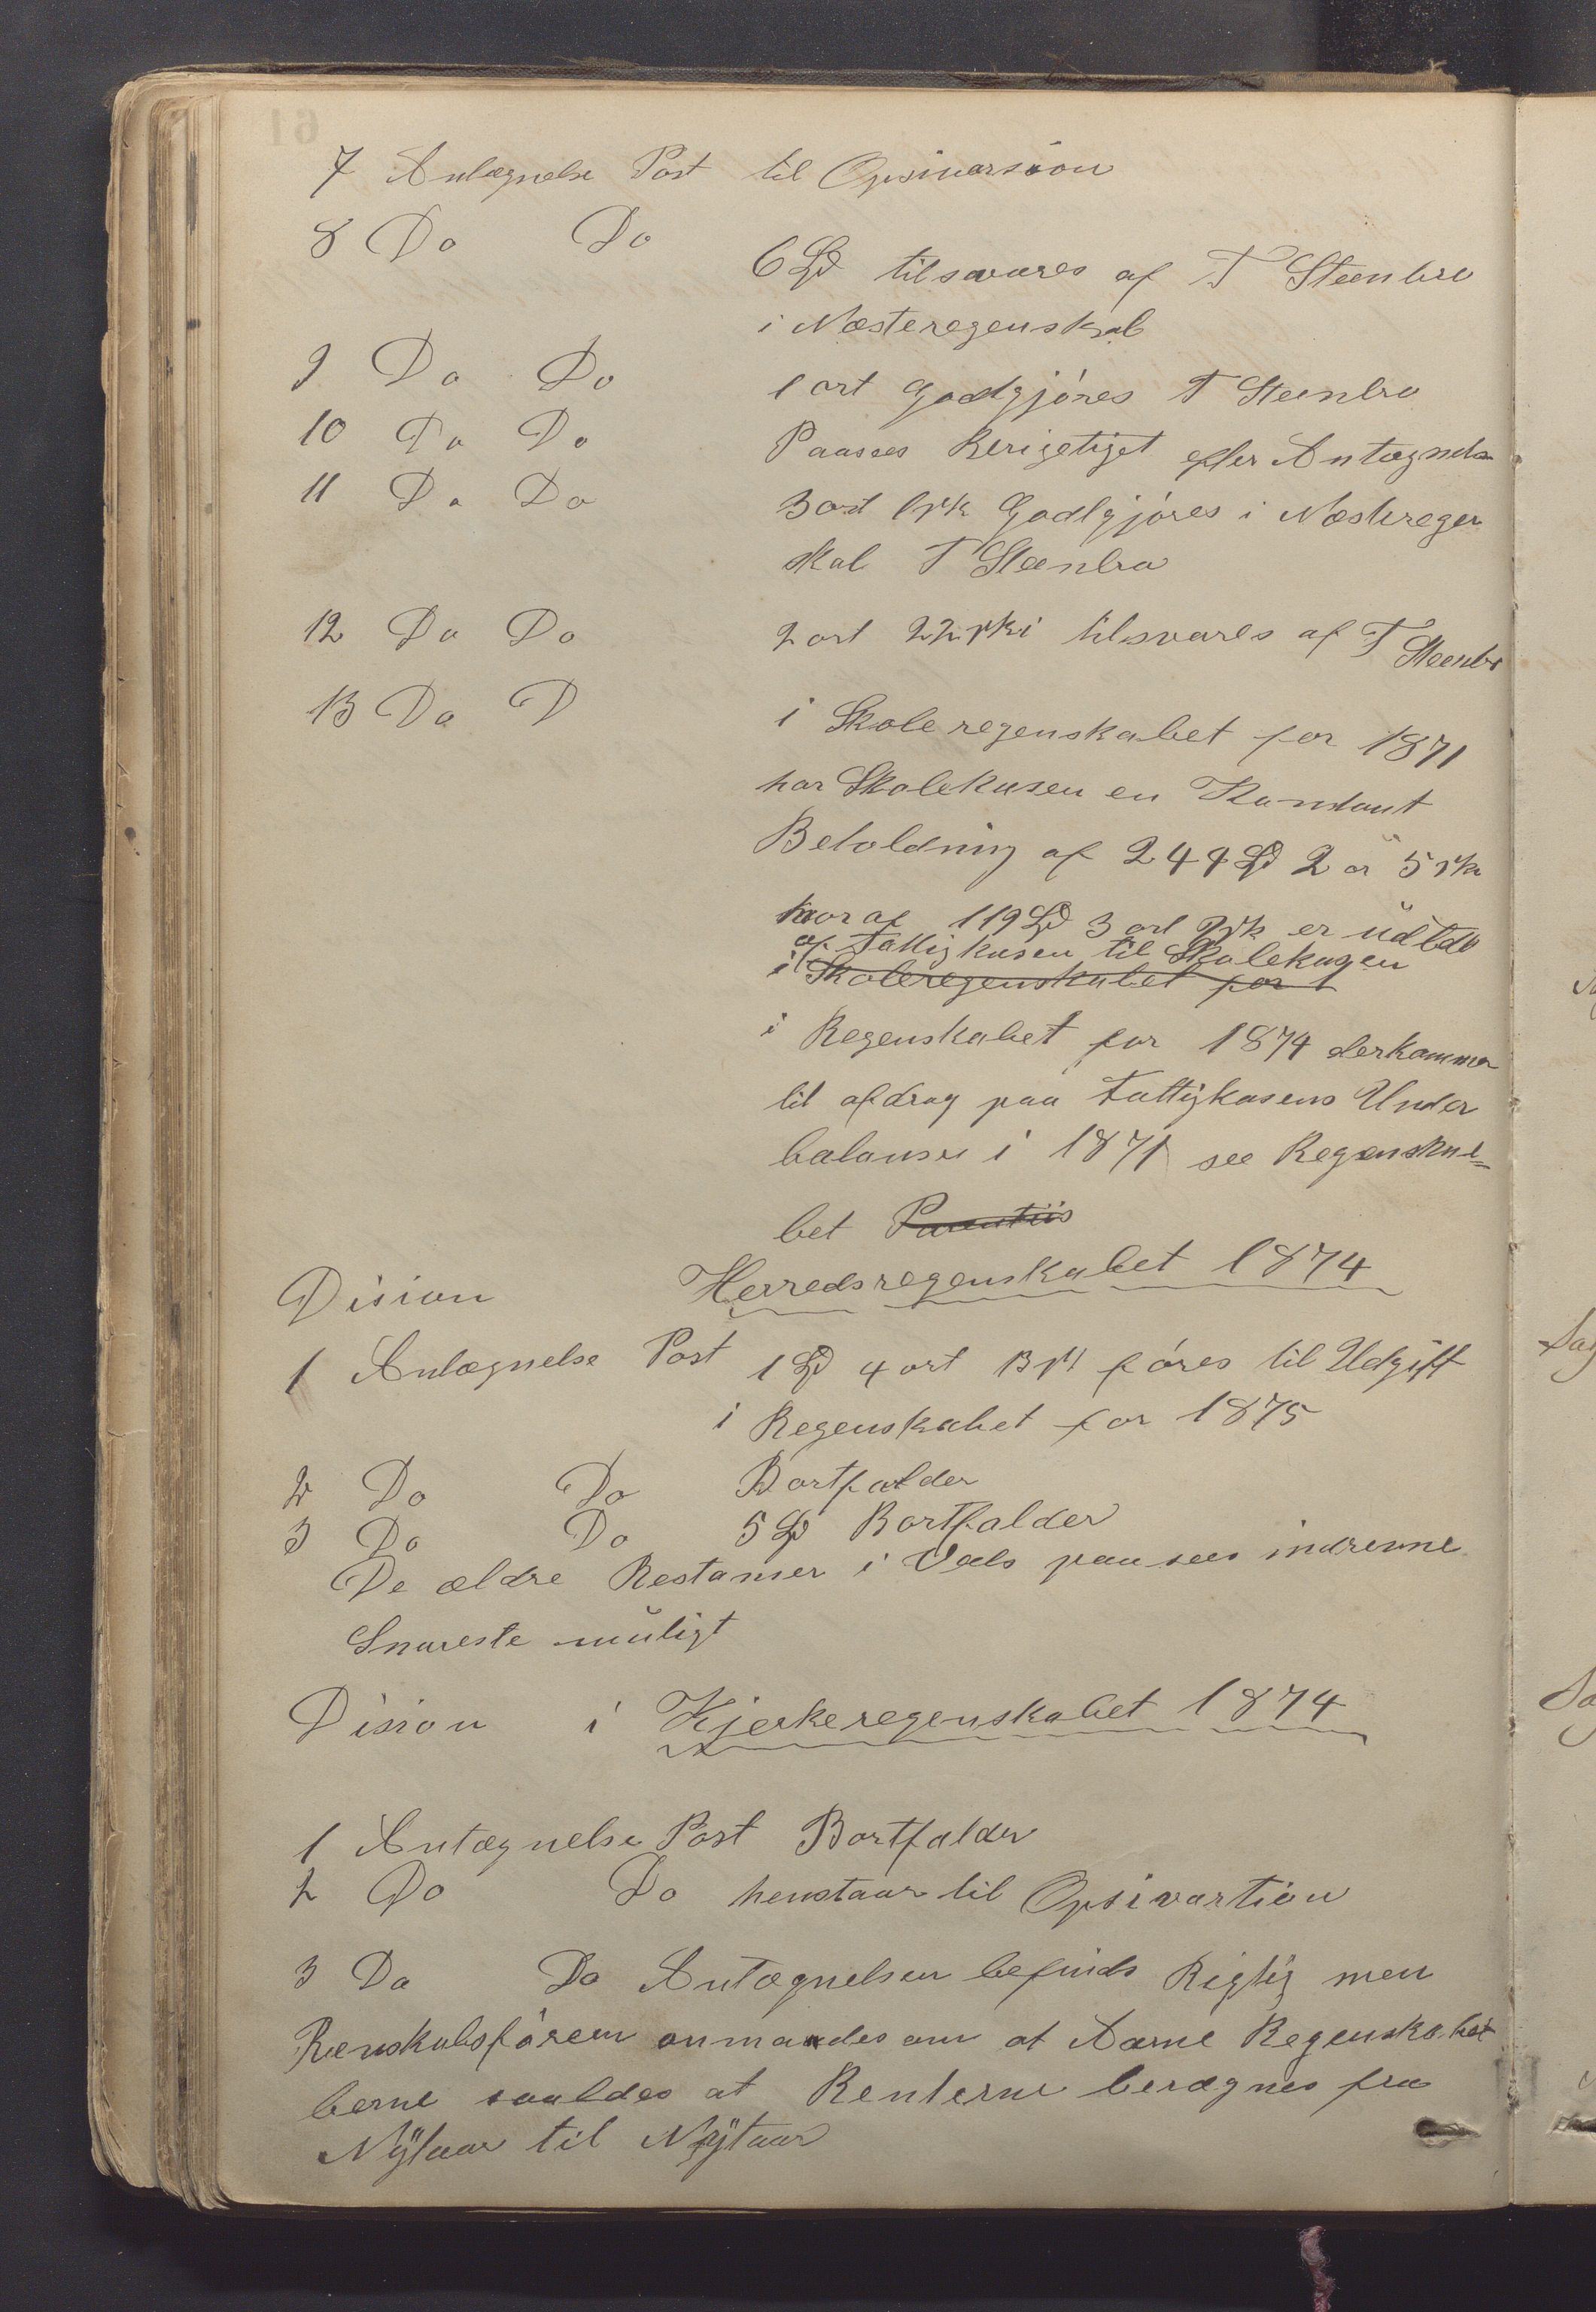 7 Antegnelse Post til Opsivarsion
8 Do Do 6 Spd tilsvares af T Steenbro
i Næsteregenskab
9 Do Do 1 ort Godtgjöres T Steenbro
10 Do Do Paasees Berigetiget efter Antægnels
11 Do Do 3 ort 1 sk Godtgjöres i Næsteregen
skab T Steenbro
12 Do Do 2 ort 22 ski tilsvares af T Steenbr
13 Do D i Skoleregenskabet for 1871
har Skolekasen en Kontant
Beholdning af 244 Spd 2 or 5 sk
hvoraf 119 Spd 3 ort sk er üdbdt
af Fattigkasen til Skolekasen
i Skoleregenskabet for 1
i Regenskabet for 1874 derkommer
til afdrag paa Fattigkasens Under
balanse i 1871 see Regenska=
bet
Dision Herredsregenskabet 1874
1 Antægnelse Post 1 Spd 4 ort 13 sk föres til Udgift
i Regenskabet for 1875
2 Do Do Bortfalder
3 Do Do 5 Spd Bortfalder
De ældre Restanser i Veels paasees indrevne
Snareste müligt
Dision i Kjerkeregenskabet 1874
1 Antægnelse Post Bortfalder
2 Do Do henstaar til Opsivartion
3 Do Do Antægnelsen befinds Rigtig men
Renskabsföreren anmodes om at Aarne Regenskabet
berne saaldes at Renterne berægnes fra
Nÿtaar til Nÿtaar